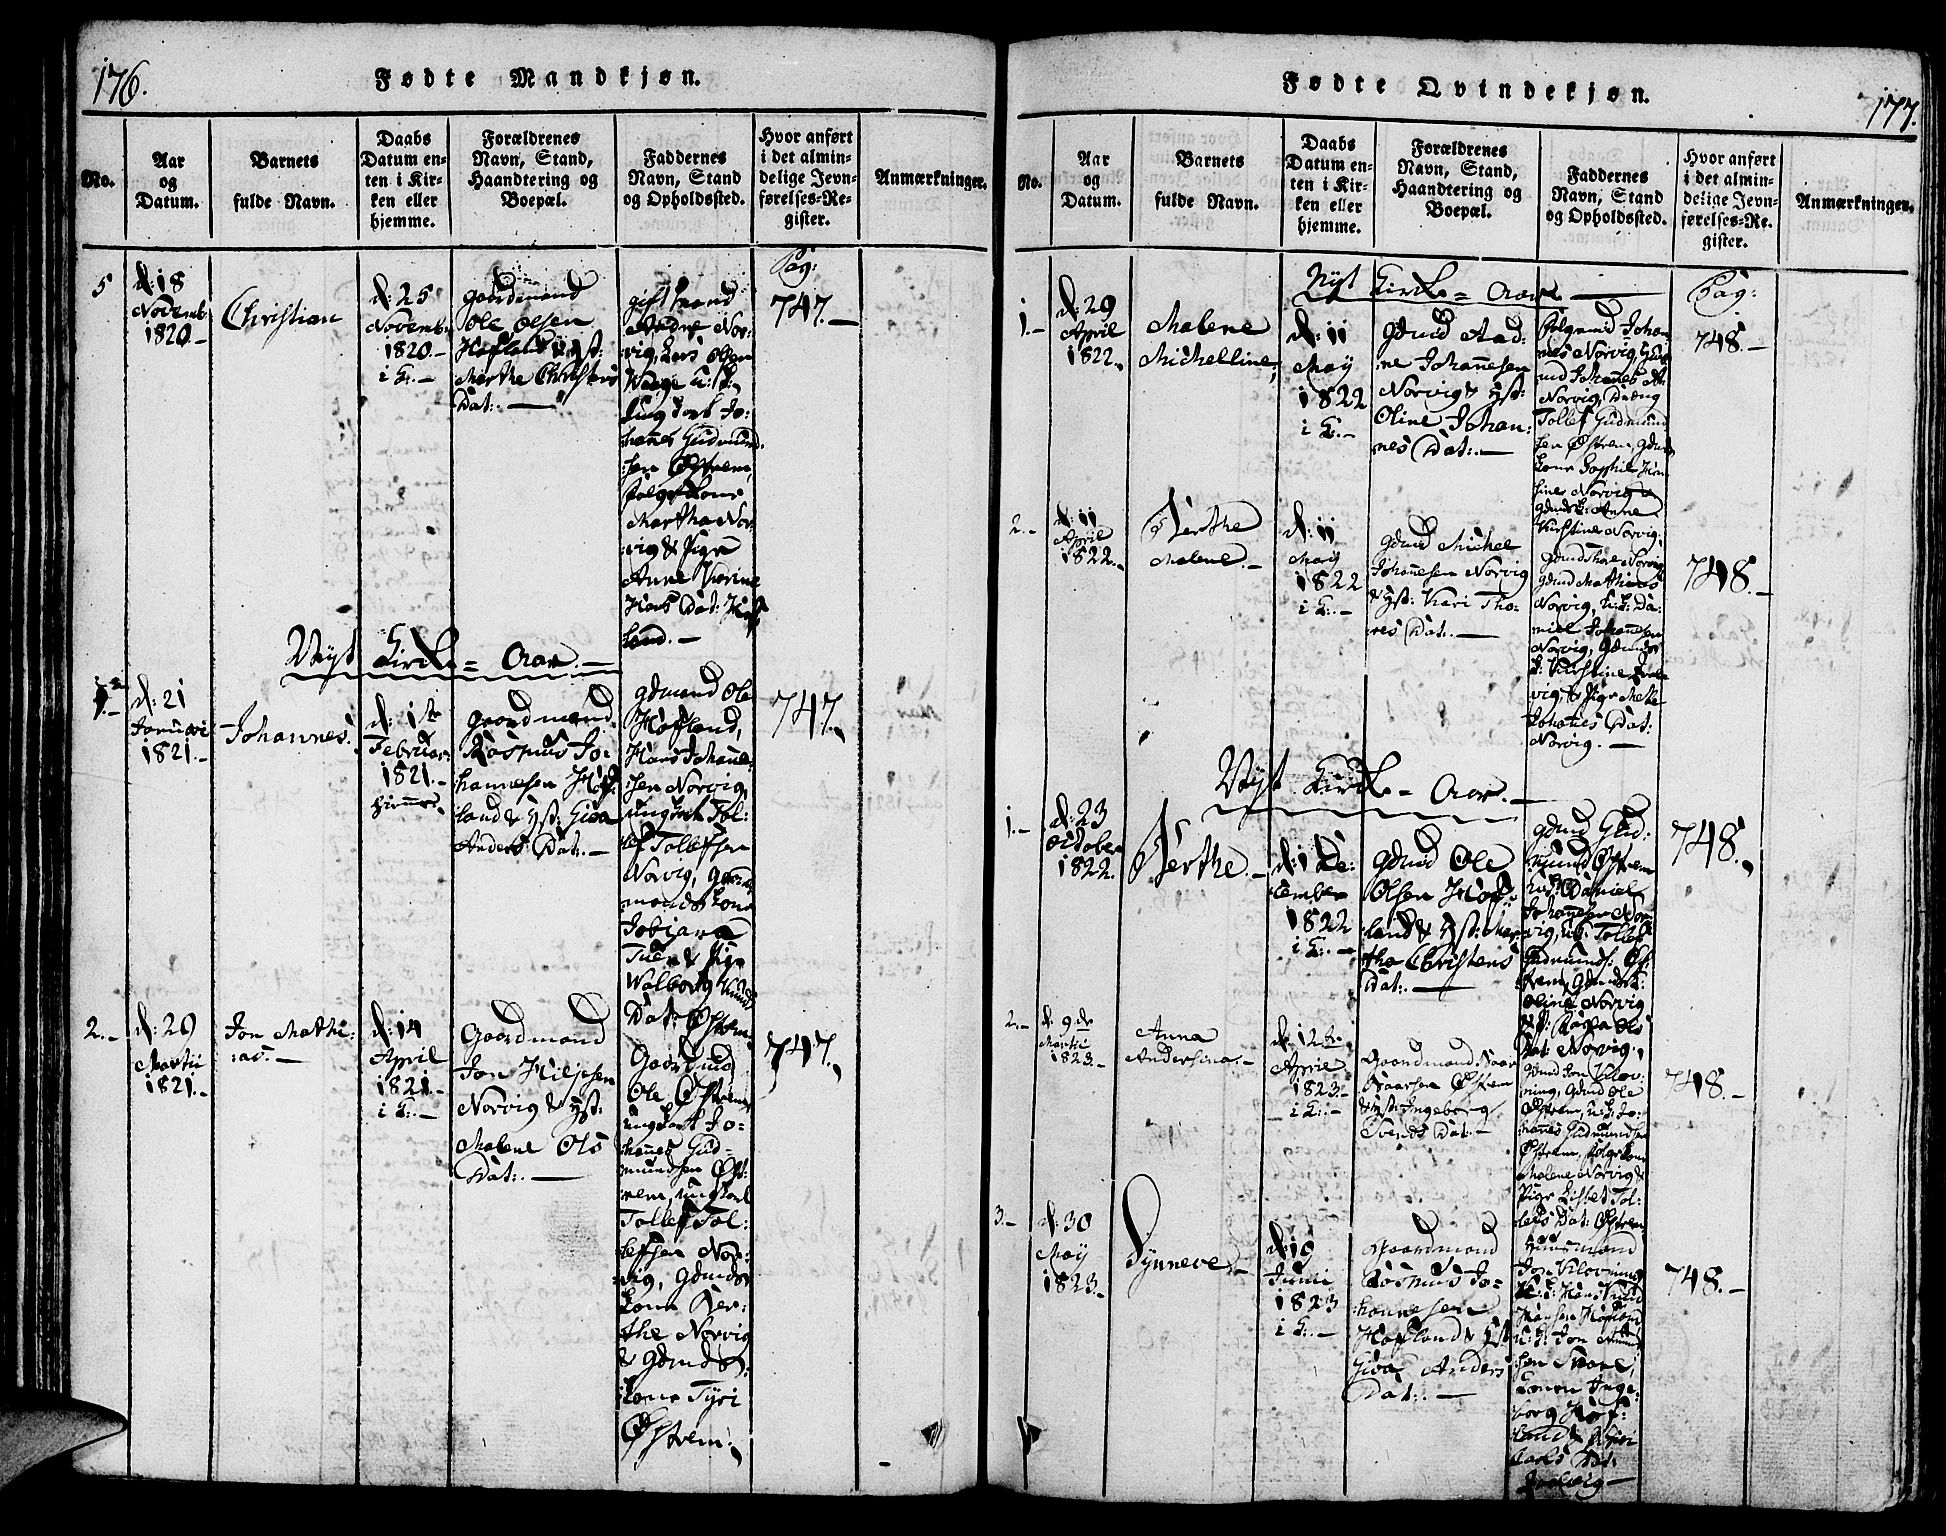 176.
Fødte Mandkjøn.
No.
Aar
og
Datum.
Barnets
fulde Navn.
Daabs
Datum en-
ten i Kir-
ken eller
hjemme.
Forældrenes
Navn, Stand,
Haandtering og
Boepæl.
Faddernes
Navn, Stand
og Opholdssted.
Hvor anført
i det almin-
delige Jevn-
førelses-Re-
gister.
Anmærkninger.
5
d: 18
Novemb:
1820.-
Christian
d: 25
Novemb:
1820.-
i K:.-
Gaardmand
Ole Olsen
Hofland & Hst:
Marthe Christens
Dat:.-
gift mand
Andre Nor-
vig, Lars Olsen
Waage u: k:,
ungkarl Jo-
hannes Gudmund-
sen Østrem,
Martha Nor-
vig & Pige
Anne Karine
Hans Dat: Hof-
land.-
Pag:
747.-
Nyt Kirke-Aar.-
1.-
d: 21
Januari
1821.-
Johannes.
d: 1ste
Februar
1821.-
hiemme.
Gaardmand
Rasmus Jo-
hannesen Hof-
land & Hst: Giøa
Anders Dat:.-
Gdmand Ole
Hofland,
Hans Johanne-
sen Norvig,
ungkarl Tol-
lef Tollefsen
Norvig, Gaard-
mands kone
Tobjara
Tuen & Pige
Walborg Knuds
Dat: Østrem.
747.
2.-
d: 29
Martii
1821.-
Jon Mathi-
as.-
d: 14
April
1821.-
i K:.-
Gaardmand
Jon Hiljesen
Norvig & Hst:
Malene Ols
Dat:.-
Gaardmd
Ole Østrem,
ungkarl Jo-
hannes Gud-
mundsen Øst-
rem, ungkarl
Tollef Tol-
lefsen Nor-
vig, Gdmds
kone Ber-
the Norvig
& Gdmds
kone Tyri
Østrem.
747.
177.
Fødte Qvindekjøn.
No.
Aar
og
Datum.
Barnets
fulde Navn.
Daabs
Datum en-
ten i Kir-
ken eller
hjemme.
Forældrenes
Navn, Stand,
Haandtering og
Boepæl.
Faddernes
Navn, Stand
og Opholdssted.
Hvor anført
i det almin-
delige Jevn-
førelses-Re-
gister.
Anmærkninger.
Nyt Kirke-Aar.
1.-
d: 29
April
1822.
Malene
Michelline.
d: 11
May
1822
i K:.-
Gdmd Aad-
ne Johannesen
Norvig & Hst:
Oline Johan-
nes Dat:.-
Johan-
nes Norvig, Gd-
md Johannes A:
Norvig, Dreng
Tollef Gudmund-
sen Østrem, Gdmds
kone Sophie
Norvig &
Gdmds k: Anne
Kirstine Norvig.
Pag:
748.-
2.-
d: 11
April
1822.-
Berthe
Malene.-
d: 11
May
1822
i K:.-
Gdmd Michel
Johannesen Norvig
& Hst: Kari Tho-
res Dat:.-
Gdmd Thore Norvig
Gdmd Mathias
Norvig, u: k: Da-
niel Johannesen
Norvig, Gdmds
k: Kirstine Nor-
vig & Pige Mette
Johanes Dat:
Norvig.-
748.-
Nyt Kirke-Aar.-
1.-
d: 23
October
1822.
Berthe.-
d: 1 De-
cember
1822
i K:.-
Gdmd Ole
Olsen Hof-
land & Hst: Mar-
tha Christens
Dat:.-
Gdmd Gud-
mund Østrem
Daniel
Johannesen Nor-
vig, u: k: Tollef
Gudmunds: Øst-
rem, Gdmds k:
Oline Norvig
& P: Ols
Dat: Norvig.
748.
2.-
d: 9de
Martii
1823.-
Anna
Andersina.-
d: 12te
April
1823.-
i K:.-
Gaardmand
Østrem
& Hst: Ingeborg
Svends Dat:-
Gdmd Jon Kløv-
ning, Gdmd Ole
Østrem, u: k: Jo-
hannes Gudmundsen
Østrem,
Malene Norvig &
Pige Lisbet Tol-
lefs Dat: Østrem.
748.-
3.-
d: 30
May
1823.-
Synneve.-
d: 19
Junii
1823
i K:.-
Gaardmand
Rasmus Jo-
hannesen
Hofland & Hst:
Giøa Anders
Dat:.-
Huusmand
Jon Kløvning,
u: k: Hans Knud
Hansen Hofland,
u: k: Jon
sen
konen Inge-
borg Hof-
land &
Dat:
748.-